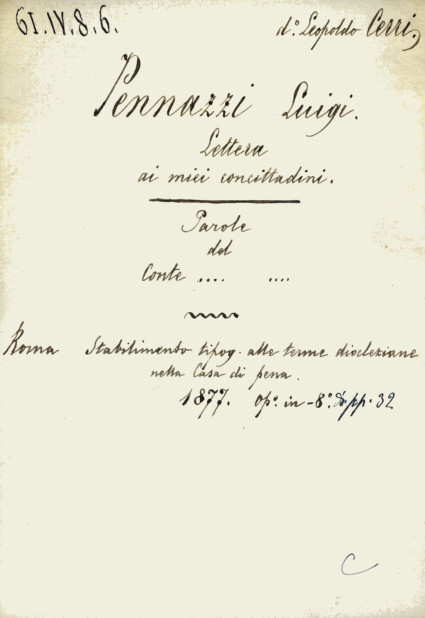 61.IV.8.6.
d.º Leopoldo Cerri,
Pennazzi Luigi.
Lettera
ai miei concittadini.
Parole
del
Conte .... ....
Roma Stabilimento tipog. alle terme diocleziane
nella Casa di pena.
1877. Op.º in-8.º pp. 32
C